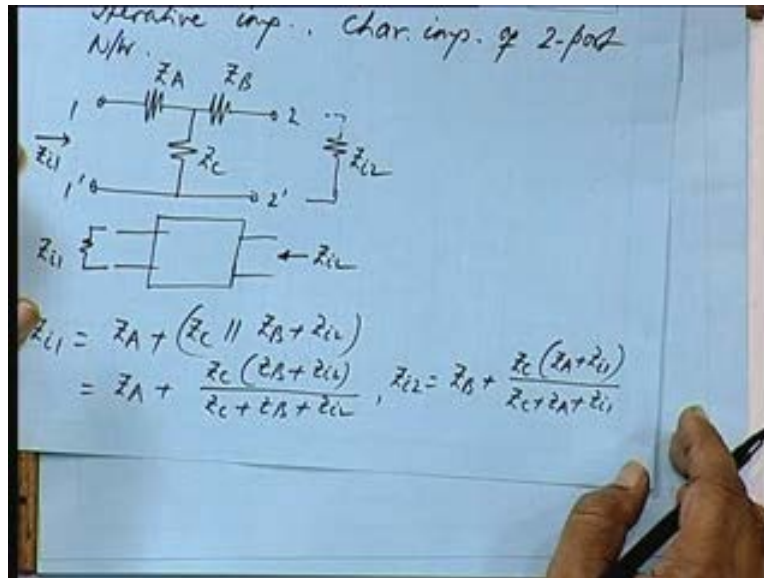 Iterative imp., Char. imp. of 2-port
N/W.
ZA ZB
1 2
Zi1 Zc Zi2
1' 2'
Zi1 Zi2
Zi1 = ZA + (Zc || ZB + Zi2)
= ZA + Zc (ZB + Zi2) / Zc + ZB + Zi2 , Zi2 = ZB + Zc (ZA + Zi1) / Zc + ZA + Zi1